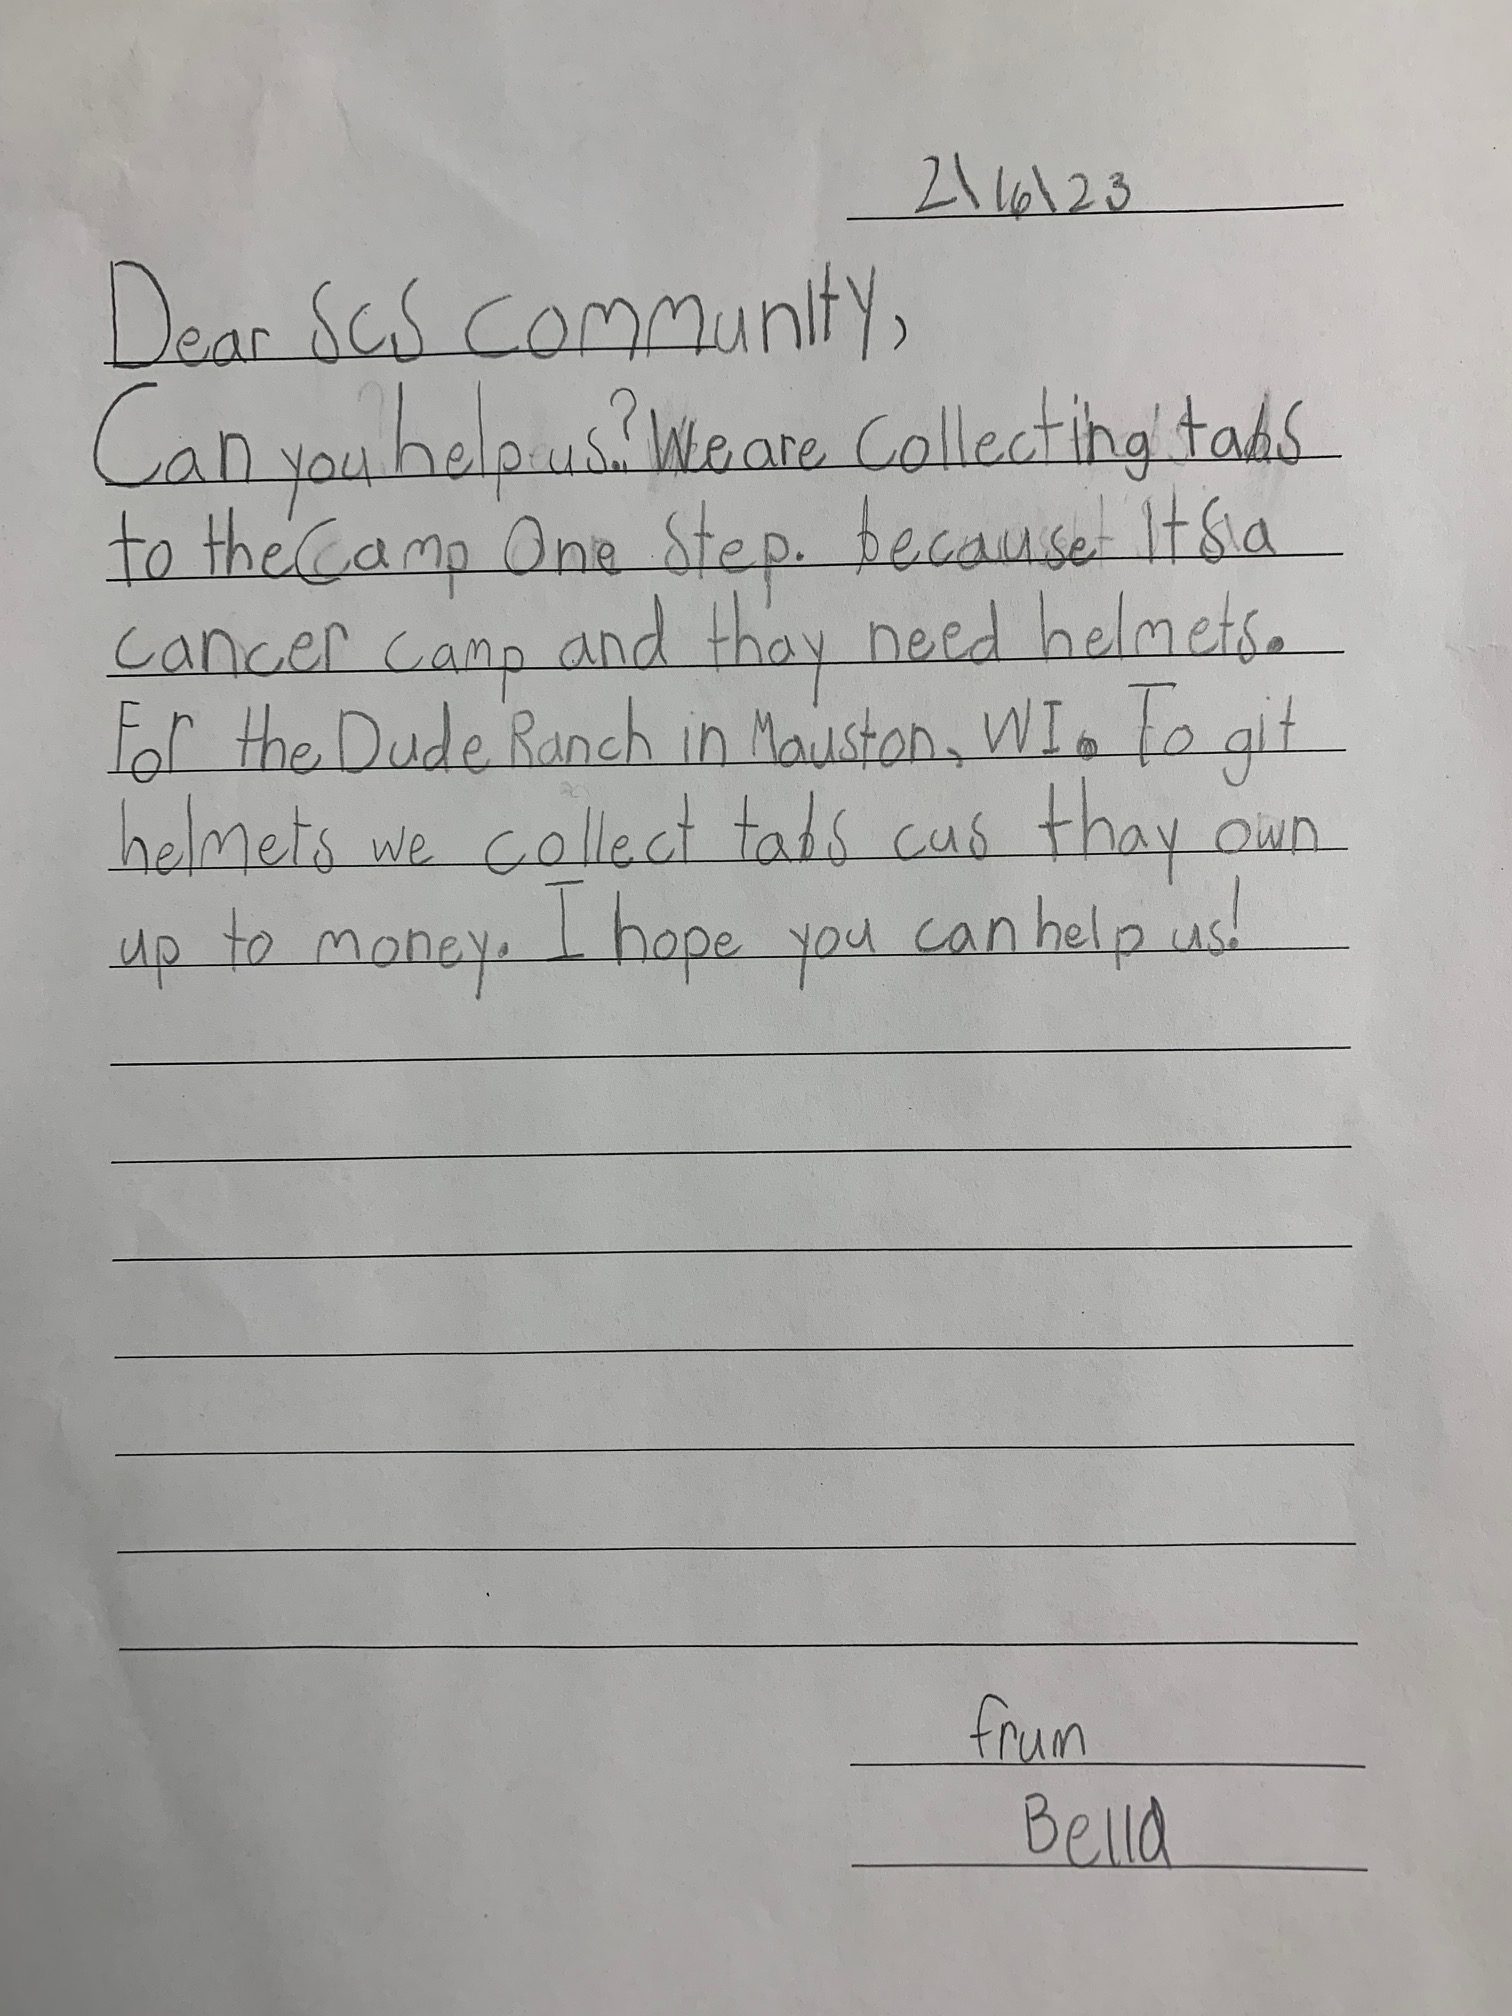 2\16\23
Dear SCS community,
Can you help us? We are collecting tabs
to the Camp One Step. because Its a
cancer camp and thay need helmets.
For the Dude Ranch in Mauston, WI. To git
helmets we collect tabs cus thay own
up to money. I hope you can help us!
frum
Bella